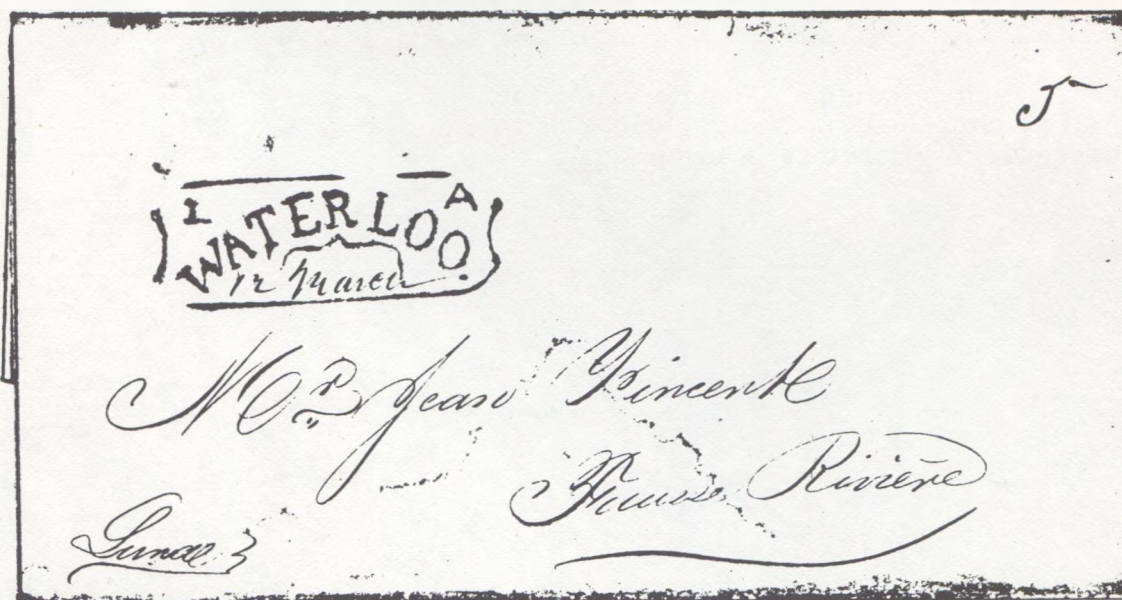 5
L WATERLOO A
12 March
Mr Jean Vincent
Fausse Rivière